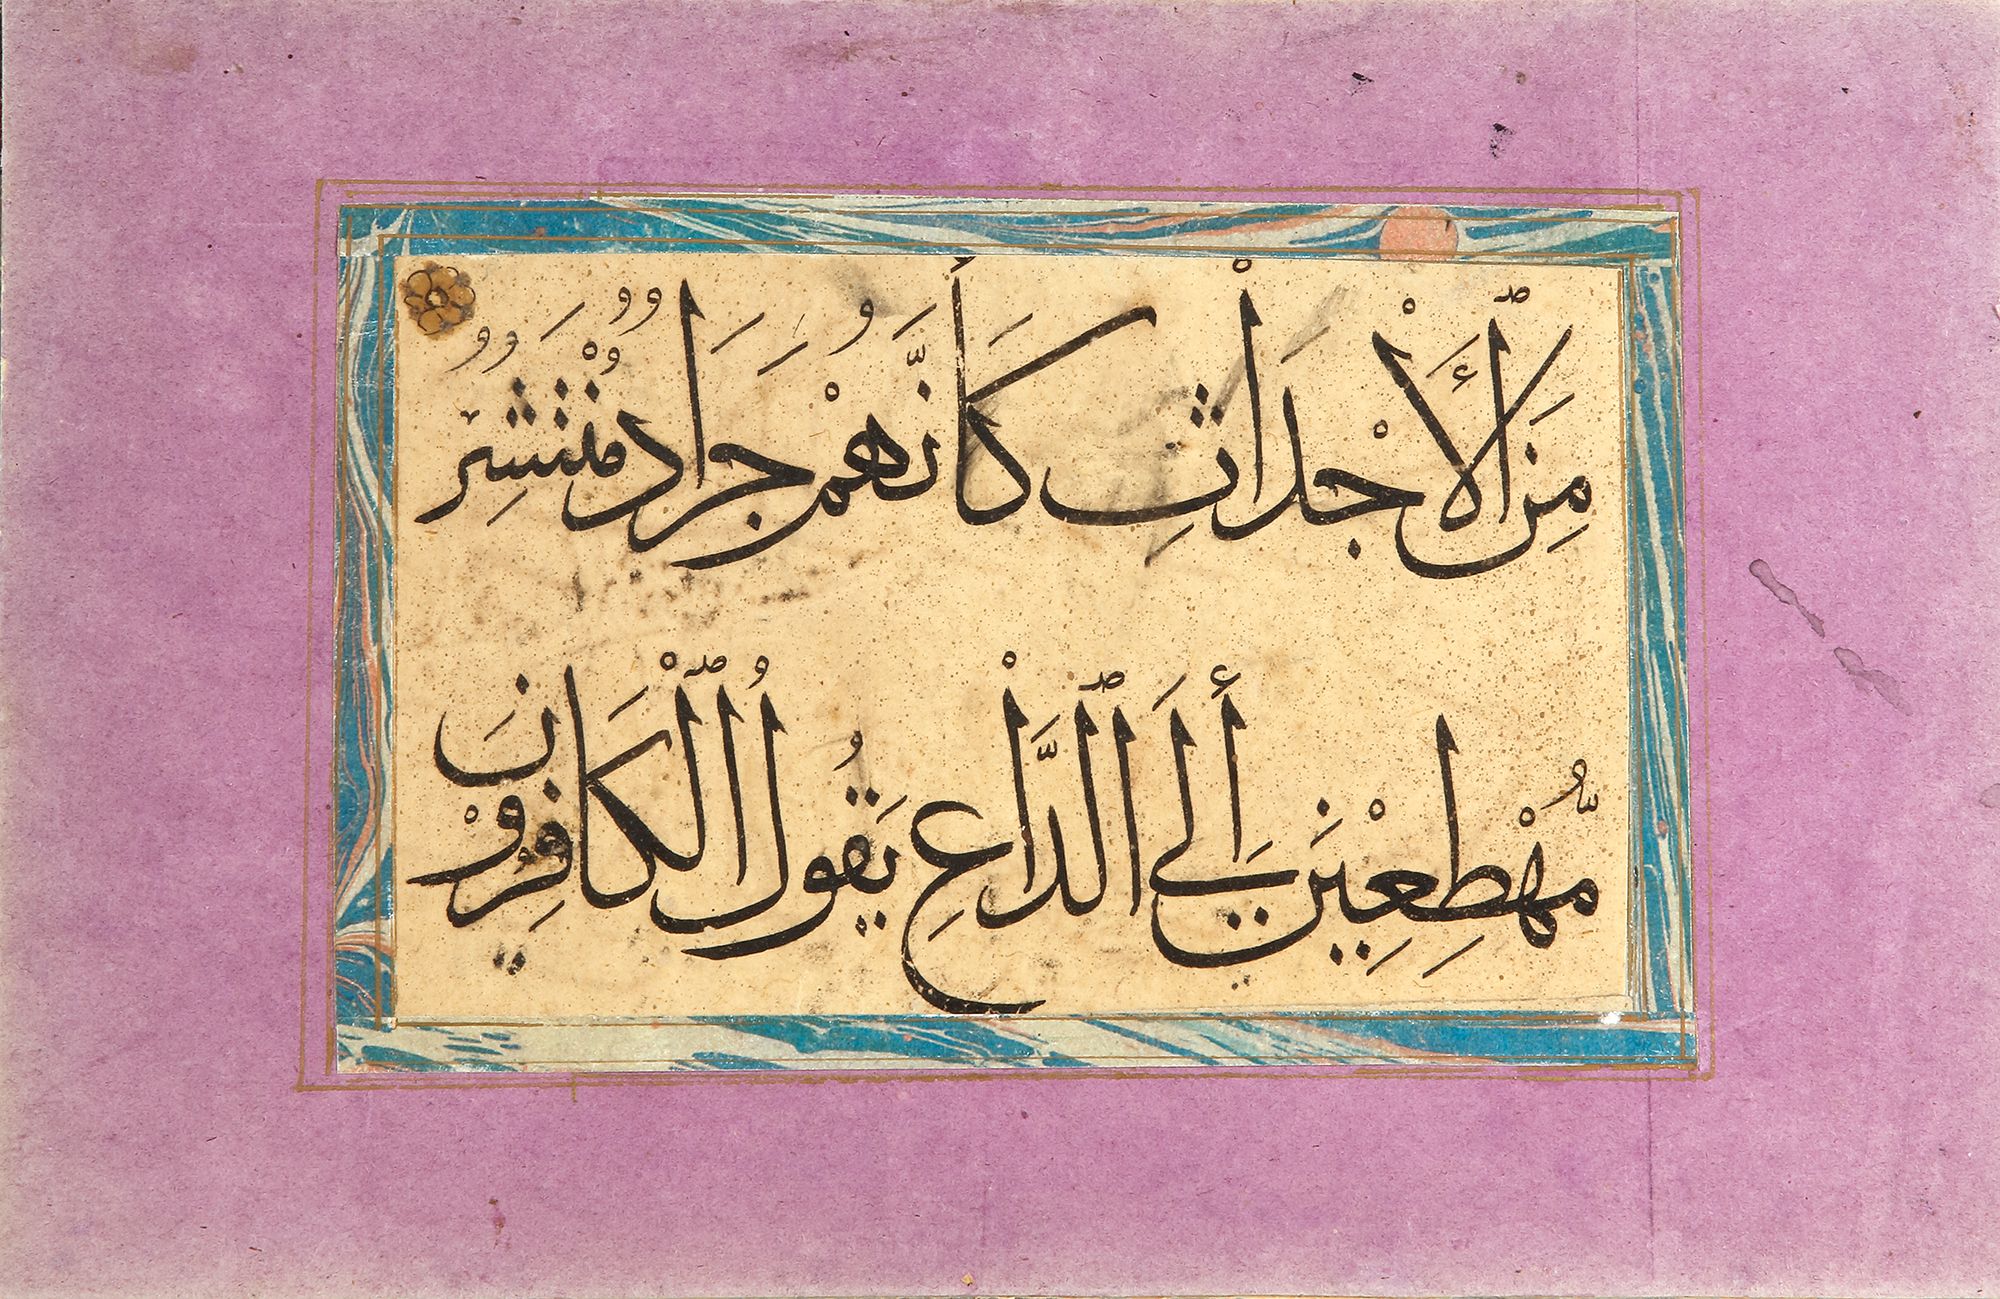 مِنَ ٱلْأَجْدَاثِ كَأَنَّهُمْ جَرَادٌ مُنْتَشِرٌ
مُهْطِعِينَ إِلَى ٱلدَّاعِ يَقُولُ ٱلْكَافِرُونَ